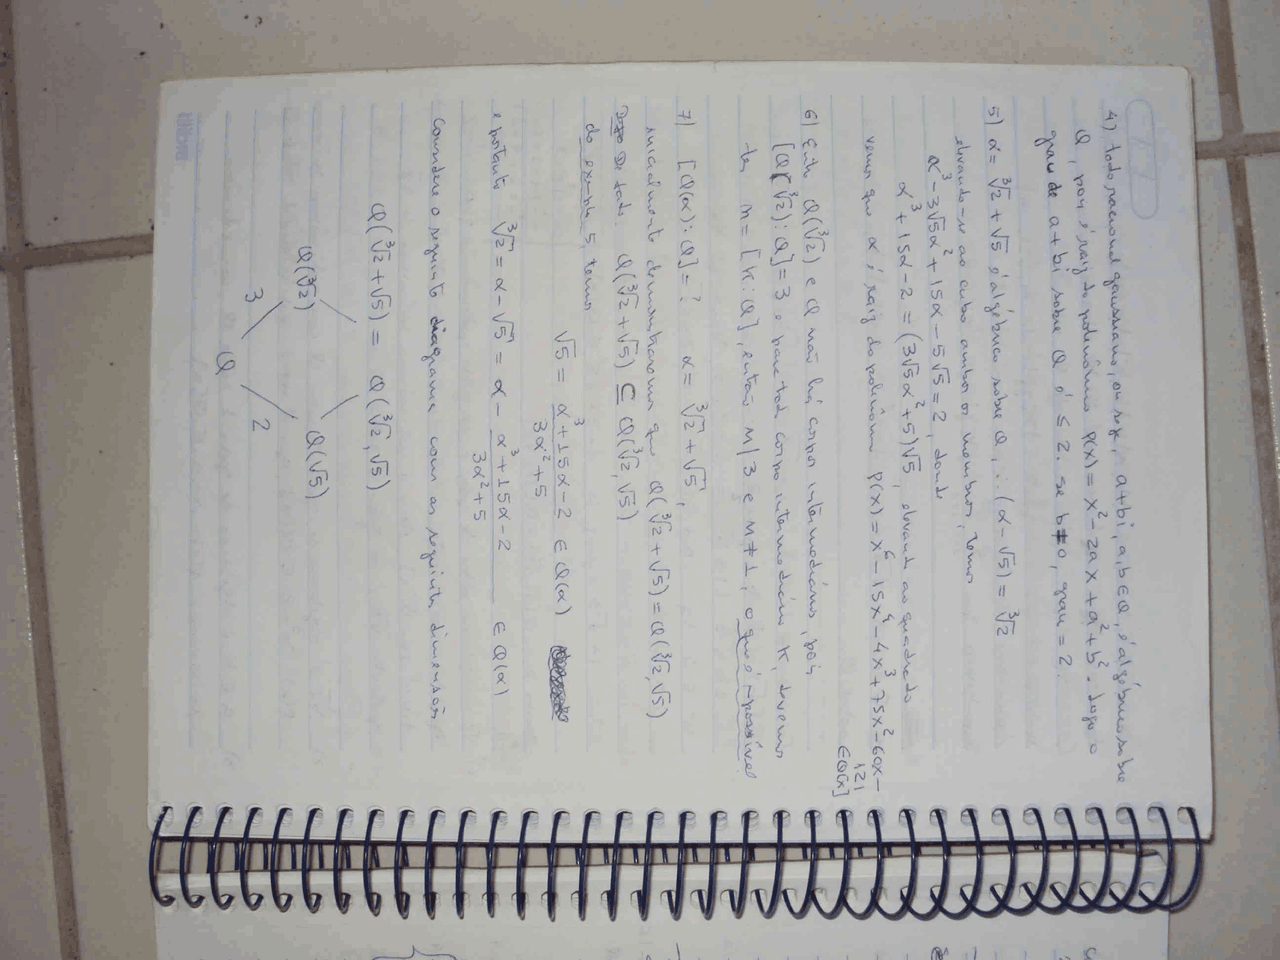 4) todo racional gaussiano, ou seja, a+bi, a,b∈Q, é algébrico sobre
Q, pois é raiz do polinômio p(x) = x² - 2ax + a² + b². Logo o
grau de a+bi sobre Q é ≤ 2. se b≠0, grau = 2.
5) α = ∛2 + √5 é algébrico sobre Q, ∴ (α - √5) = ∛2
elevando-se ao cubo ambos os membros, temos
α³ - 3√5α² + 15α - 5√5 = 2, donde
α³ + 15α - 2 = (3√5α² + 5)√5, elevando ao quadrado
vemos que α é raiz do polinômio p(x) = x⁶ - 15x⁴ - 4x³ + 75x² - 60x -
121
∈Q[x]
6) Entre Q(∛2) e Q não há corpo intermediário, pois
[Q(∛2):Q] = 3 e para todo corpo intermediário K, devemos
ter n = [K:Q], então n|3 e n≠1, o que é impossível
7) [Q(α):Q] = ? α = ∛2 + √5,
inicialmente demonstraremos que Q(∛2+√5) = Q(∛2,√5)
De fato. Q(∛2+√5) ⊆ Q(∛2,√5)
do exemplo 5, temos
√5 = α³+15α-2 / 3α²+5 ∈ Q(α)
e portanto ∛2 = α - √5 = α - α³+15α-2 / 3α²+5 ∈ Q(α)
Considere o seguinte diagrama com as seguintes dimensões
Q(∛2+√5) = Q(∛2,√5)
Q(∛2) Q(√5)
3 2
Q